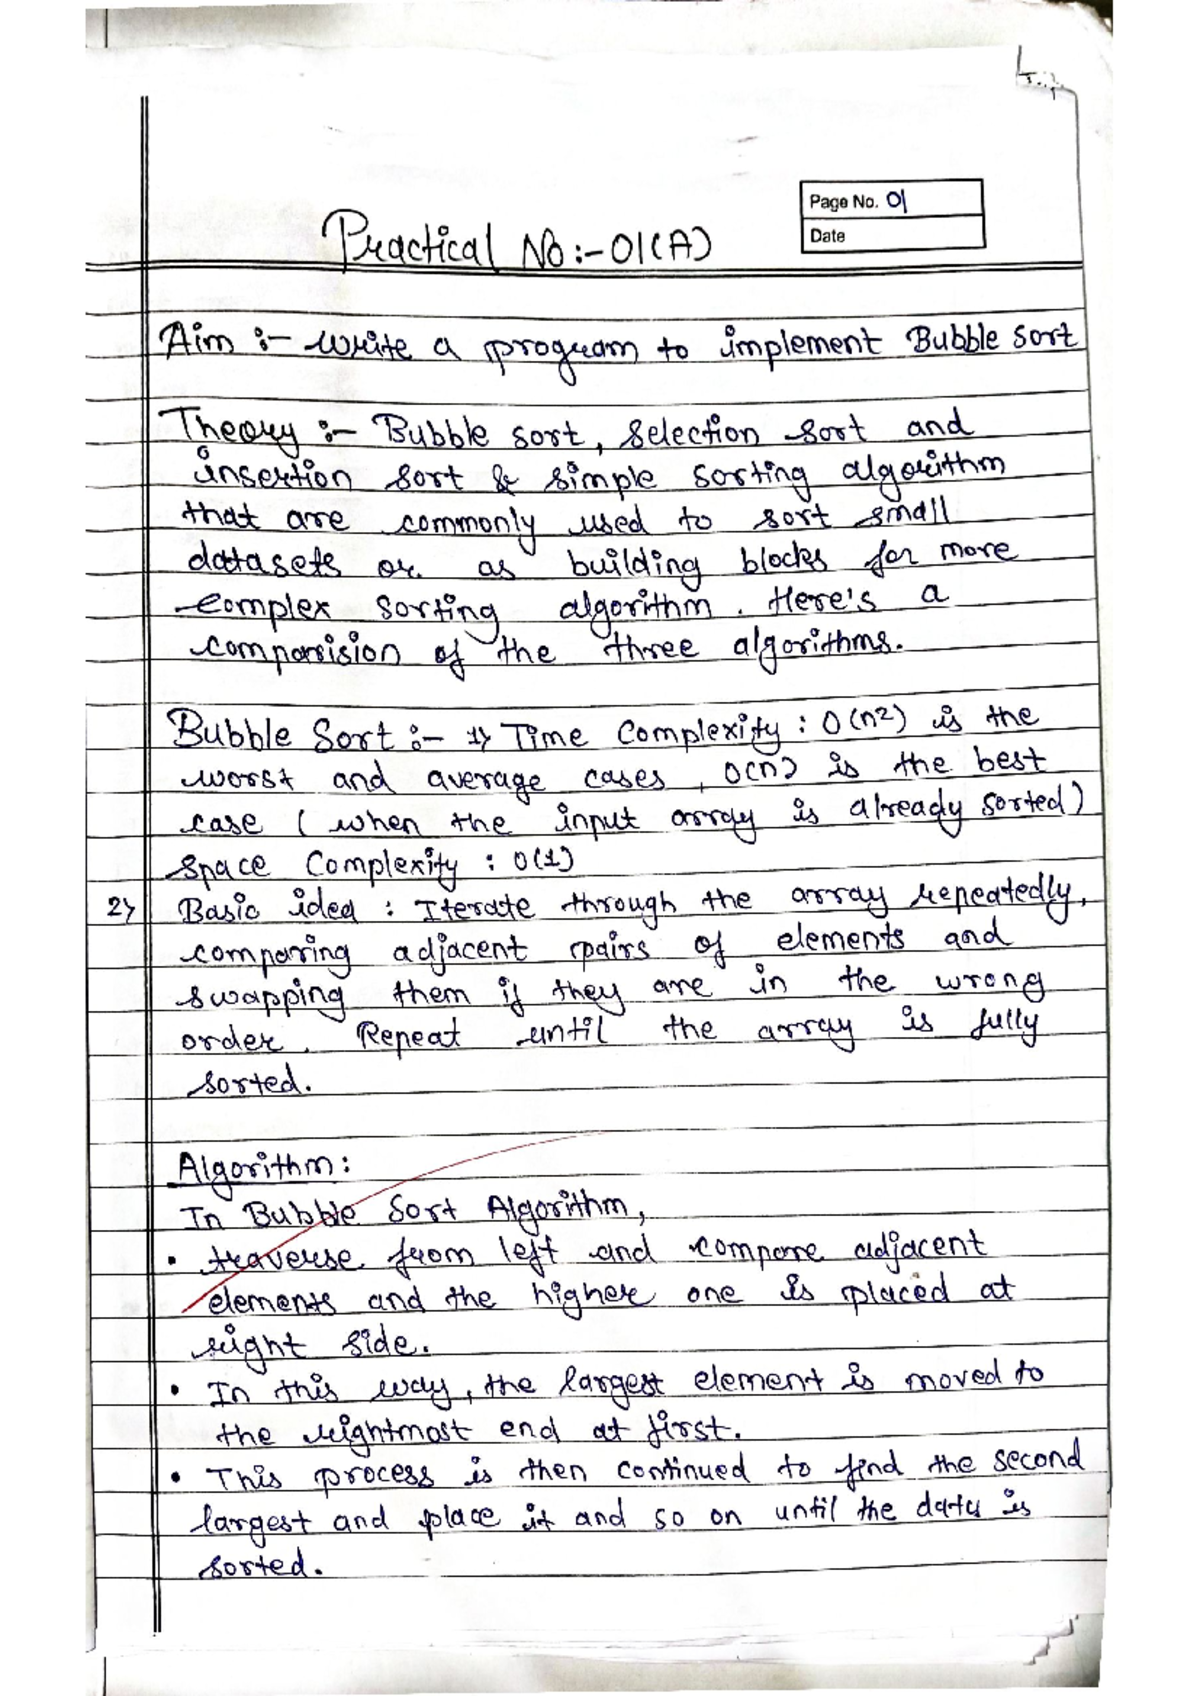 Page No. 01
Date
Practical No :- 01(A)
Aim :- write a program to implement Bubble sort
Theory :- Bubble sort, selection sort and
insertion sort & simple sorting algorithm
that are commonly used to sort small
datasets or as building blocks for more
complex sorting algorithm. Here's a
comparision of the three algorithms.
Bubble Sort :- 1) Time Complexity : O(n2) is the
worst and average cases, O(n) is the best
case (when the input array is already sorted)
space Complexity : O(1)
2) Basic idea : Iterate through the array repeatedly,
comparing adjacent pairs of elements and
swapping them if they are in the wrong
order. Repeat until the array is fully
sorted.
Algorithm :
In Bubble Sort Algorithm,
• traverse from left and compare adjacent
elements and the higher one is placed at
right side.
• In this way, the largest element is moved to
the rightmost end at first.
• This process is then continued to find the second
largest and place it and so on until the data is
sorted.